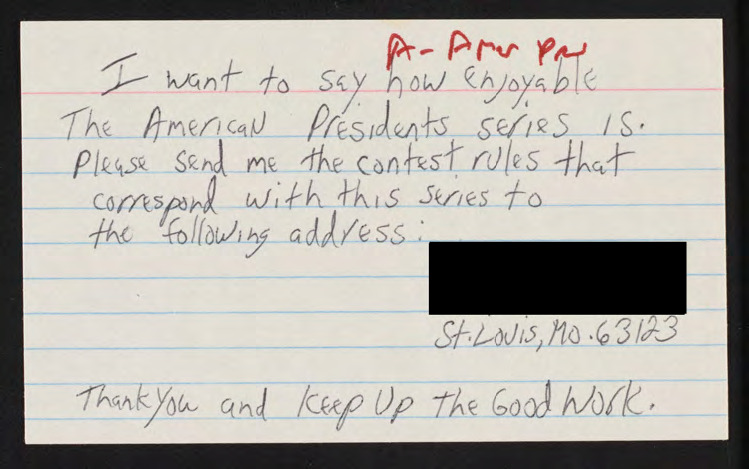 A- Amer Pre
I want to say how enjoyable
The American Presidents series is.
Please send me the contest rules that
correspond with this series to
the following address:
St. Louis, Mo. 63123
Thank You and Keep Up The Good Work.